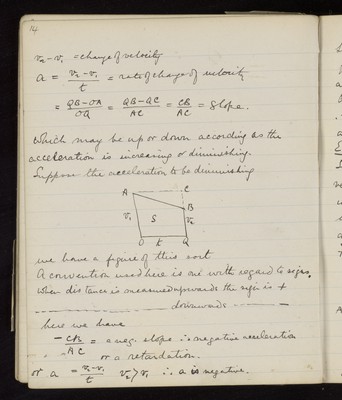 14
v₂ - v₁ = change of velocity
a = v₂ - v₁ / t = rate of change of velocity
= QB - OA / OQ = QB - QC / AC = CB / AC = Slope.
which may be up or down according as the
acceleration is increasing or diminishing.
Suppose the acceleration to be diminishing
A C
B
v₁ S v₂
O t Q
we have a figure of this sort
A convention used here is one with regard to signs,
when distance is measured upwards the sign is +
downwards -
here we have
- CB / AC = a neg. slope ∴ negative acceleration
or a retardation.
or a = v₂ - v₁ / t v₂ > v₁ ∴ a is negative.